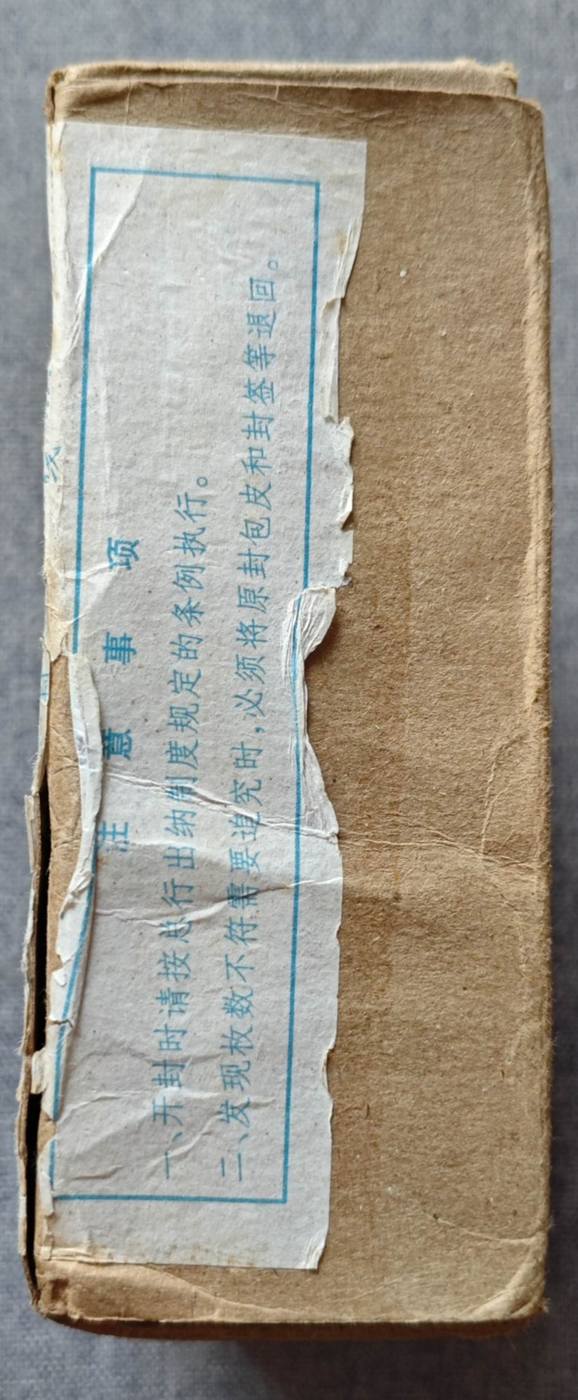 注意事项
一、开封时请按总行出纳制度规定的条例执行。
二、发现枚数不符需要追究时,必须将原封包皮和封签等退回。